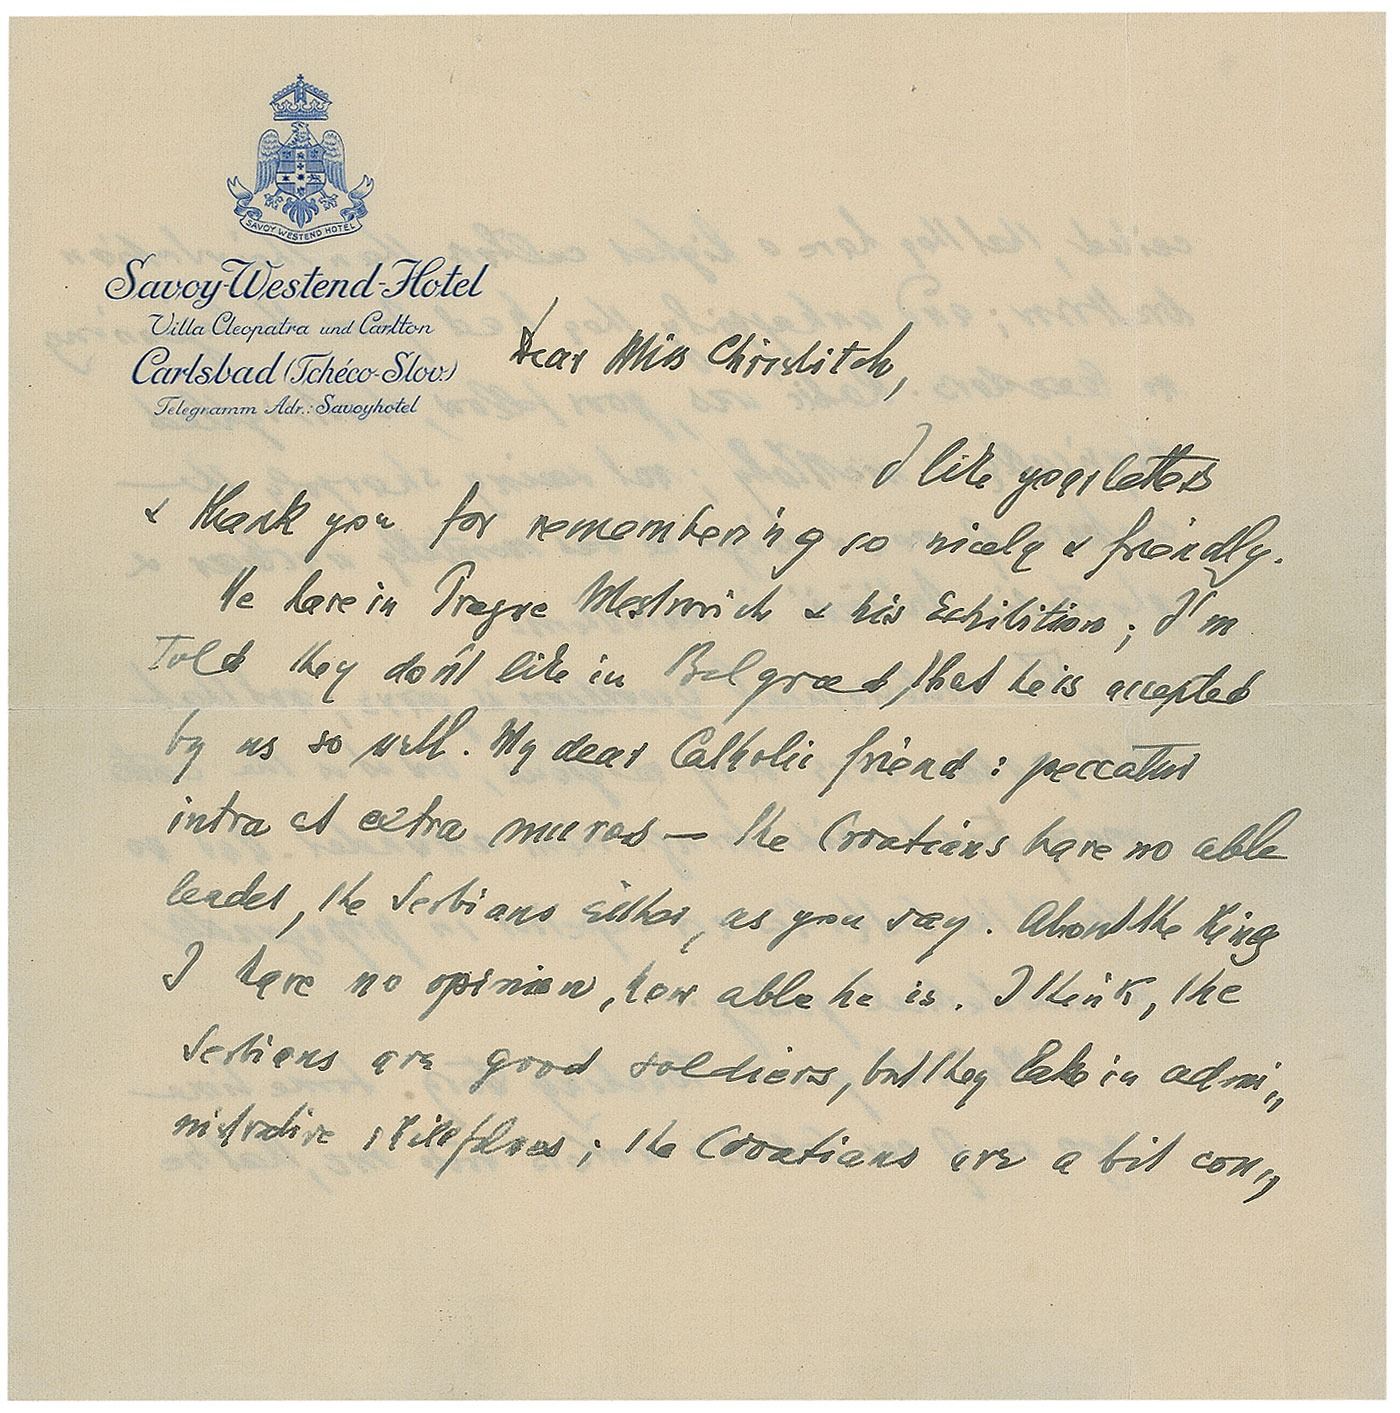 SAVOY WESTEND HOTEL
Savoy-Westend-Hotel
Villa Cleopatra und Carlton
Carlsbad (Tchéco-Slov.)
Telegramm Adr.: Savoyhotel
Dear Miss Chrislitch,
I like your letters
& thank you for remembering so nicely & friendly.
We have in Prague Mestrovich & his Exhibition; I'm
told they don't like in Belgrad, that he is accepted
by us so well. My dear Catholic friend: peccatur
intra et extra muros — the Croatians have no able
leader, the Serbians either, as you say. About the King
I have no opinion, how able he is. I think, the
Serbians are good soldiers, but they lake in admi„
nistrative ; the Croatians are a bit con„